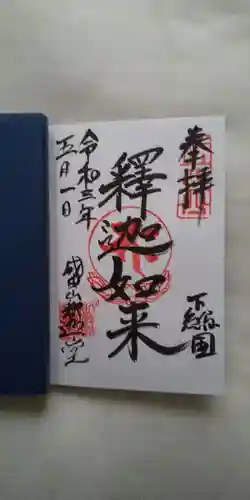 奉拝
下総国
釋迦如来
令和三年
五月一日